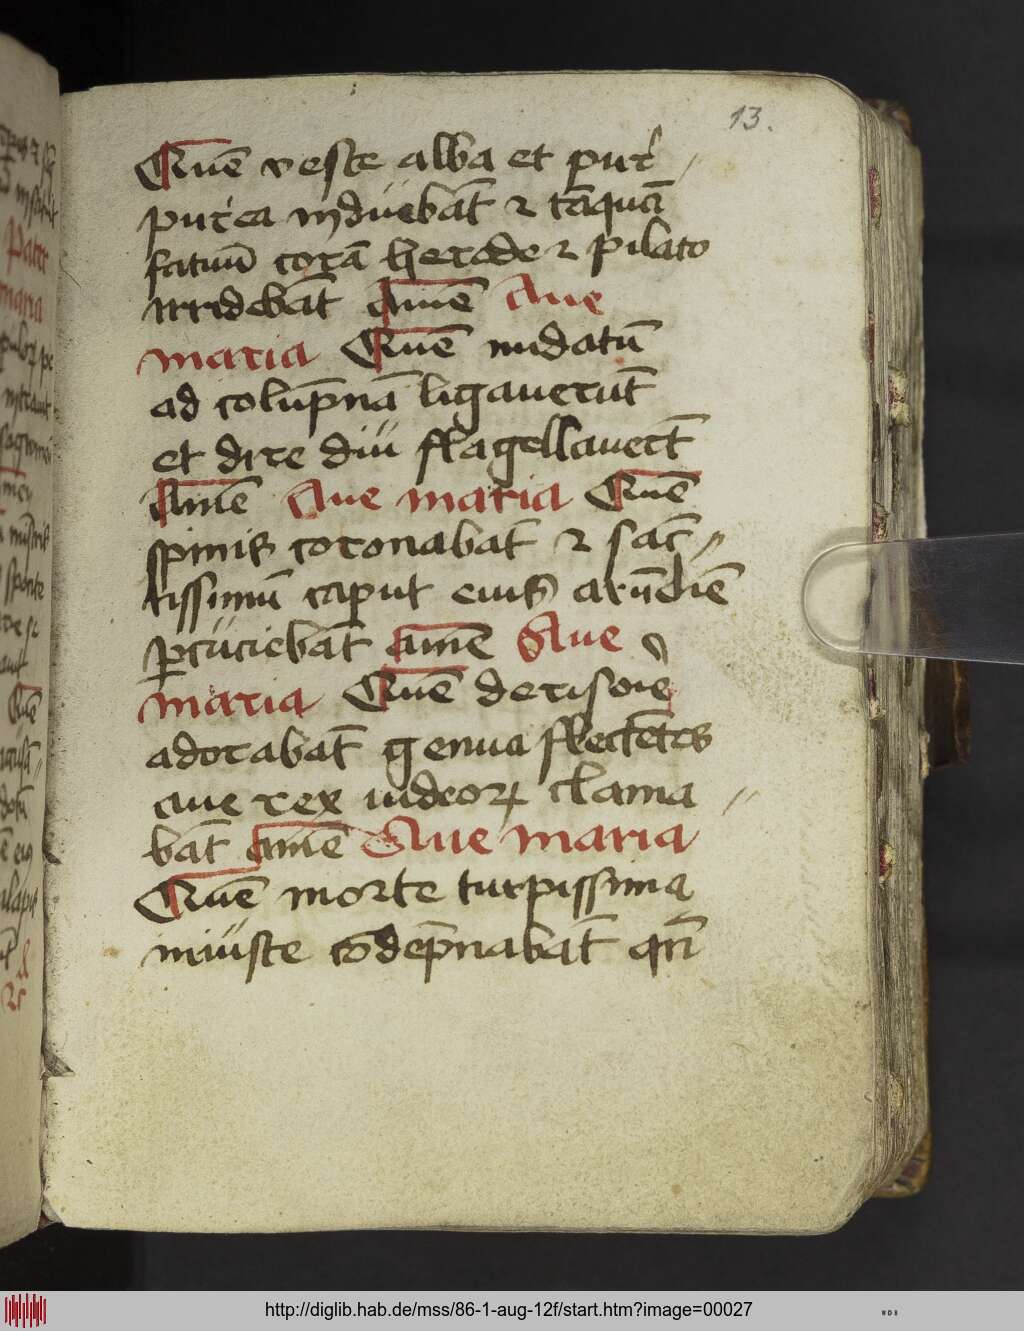 13.
Quē veste alba et pur̄
purea induebāt ⁊ tāquā
fatuū corā herode ⁊ pilato
irridebāt amē Aue
maria Quē nudatū
ad colūpnā ligauerūt
et dire diu flagellauert̄
Amē Aue maria Quē
spinis coronabāt ⁊ sac̄
tissimū caput eius arūdiē
ꝑcuciebāt amē Aue
maria Quē derisorie
adorabāt genua flectētes
aue rex iudeoꝝ clama
bāt amē Aue maria
Quē morte turpissima
iniuste cōdēpnabāt qn̄
http://diglib.hab.de/mss/86-1-aug-12f/start.htm?image=00027